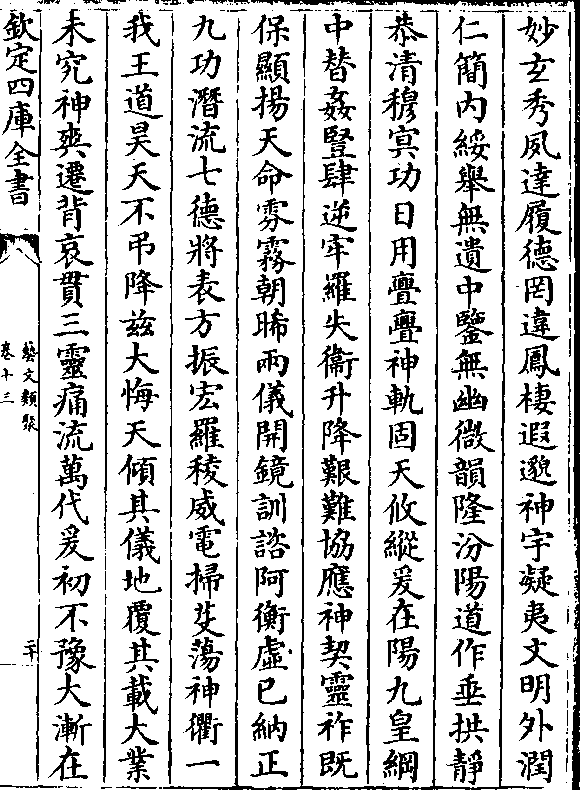 妙玄秀夙達履德罔違鳳棲遐邈神宇凝夷文明外潤
仁簡内綏舉無遺中鑒無幽微韻隆汾陽道作垂拱靜
恭清穆冥功日用亹亹神軌固天攸縱爰在陽九皇綱
中替姦豎肆逆牢羅失衞升降艱難協應神契靈祚既
保顯揚天命雰霧朝晞兩儀開鏡訓諮阿衡虛已納正
九功潛流七德將表方振宏羅稜威電掃芟蕩神衢一
我王道昊天不弔降兹大悔天傾其儀地覆其載大業
未究神爽遷背哀貫三靈痛流萬代爰初不豫大漸在
欽定四庫全書
藝文類聚
卷十三
二十